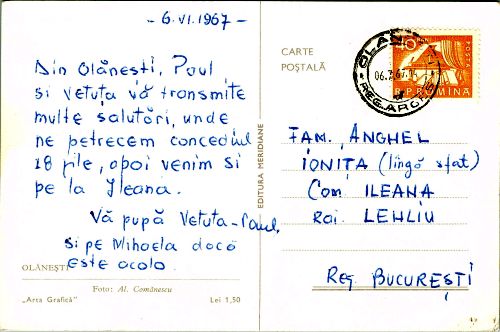 - 6.VI.1967 -
Din Olănești, Paul
și Vetuța vă transmite
multe salutări, unde
ne petrecem concediul
18 zile, apoi venim și
pe la Ileana.
Vă pupă Vetuța - Paul,
și pe Mihaela dacă
este acolo
OLĂNEȘTI
Foto: Al. Comănescu
„Arta Grafică" Lei 1,50
EDITURA MERIDIANE
CARTE
POȘTALĂ
OLANEȘTI
REG. ARGEȘ
40 BANI
POSTA
R.P. ROMINA
FAM. ANGHEL
IONIȚA (lîngă sfat)
Com. ILEANA
Rai. LEHLIU
Reg. BUCUREȘTI